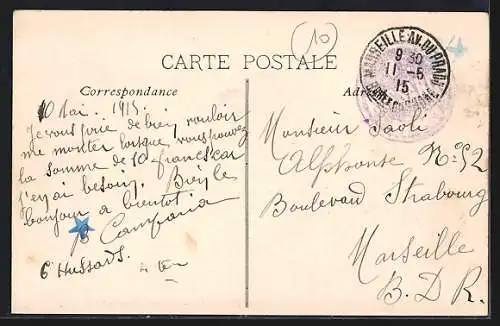 (10)
CARTE POSTALE
MARSEILLE AV. DU PRADO
9 30
11 - 6
15
Correspondance
10 Mai. 1915.
Je vous prie de bien vouloir
me monter lorsque vous pouvez
la somme de 10 francs car
j'en ai besoin. Bien le
bonjour a bientot
Campana
6 Hussards.
Monsieur Paoli
Alphonse No 52
Boulevard Strabourg
Marseille
B. D. R.